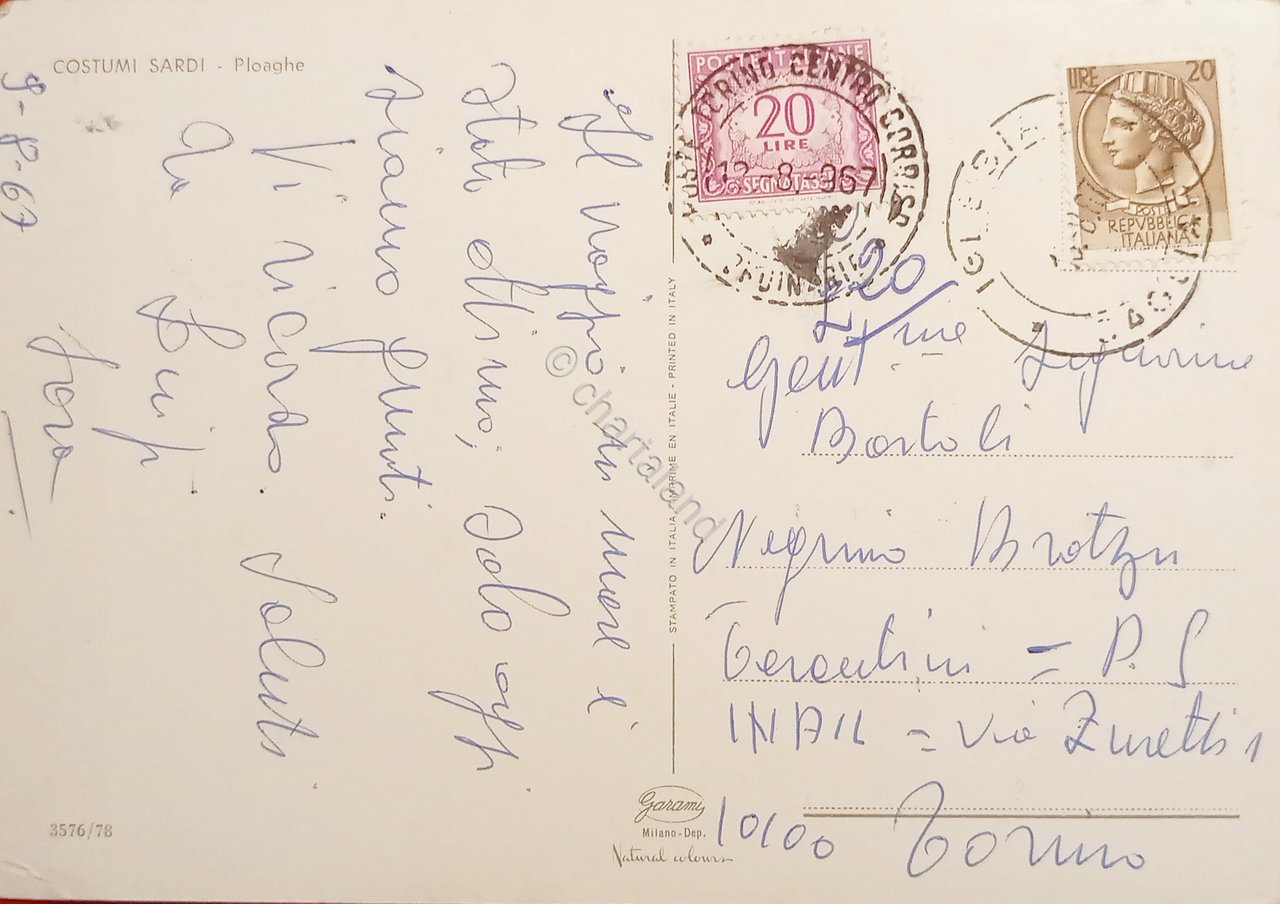 COSTUMI SARDI - Ploaghe
9-8-67
Il viaggio in mare è
stato ottimo, solo oggi
siamo giunti.
Vi ricordo. Saluti
da
POSTE ITALIANE
20
LIRE
SEGNATASSE
POSTE TORINO CENTRO CORRISP
12-8-967
ORDINARIE
£ 20
LIRE 20
POSTE
REPVBBLICA
ITALIANA
IGLESIAS
Gent.me Signorine
Bortoli
Negrino Brotzu
= P. S
INAIL = Via Zuretti 1
10100 Torino
STAMPATO IN ITALIA - IMPRIME EN ITALIE - PRINTED IN ITALY
Garami
Milano-Dep.
Natural colours
3576/78
© chartaland